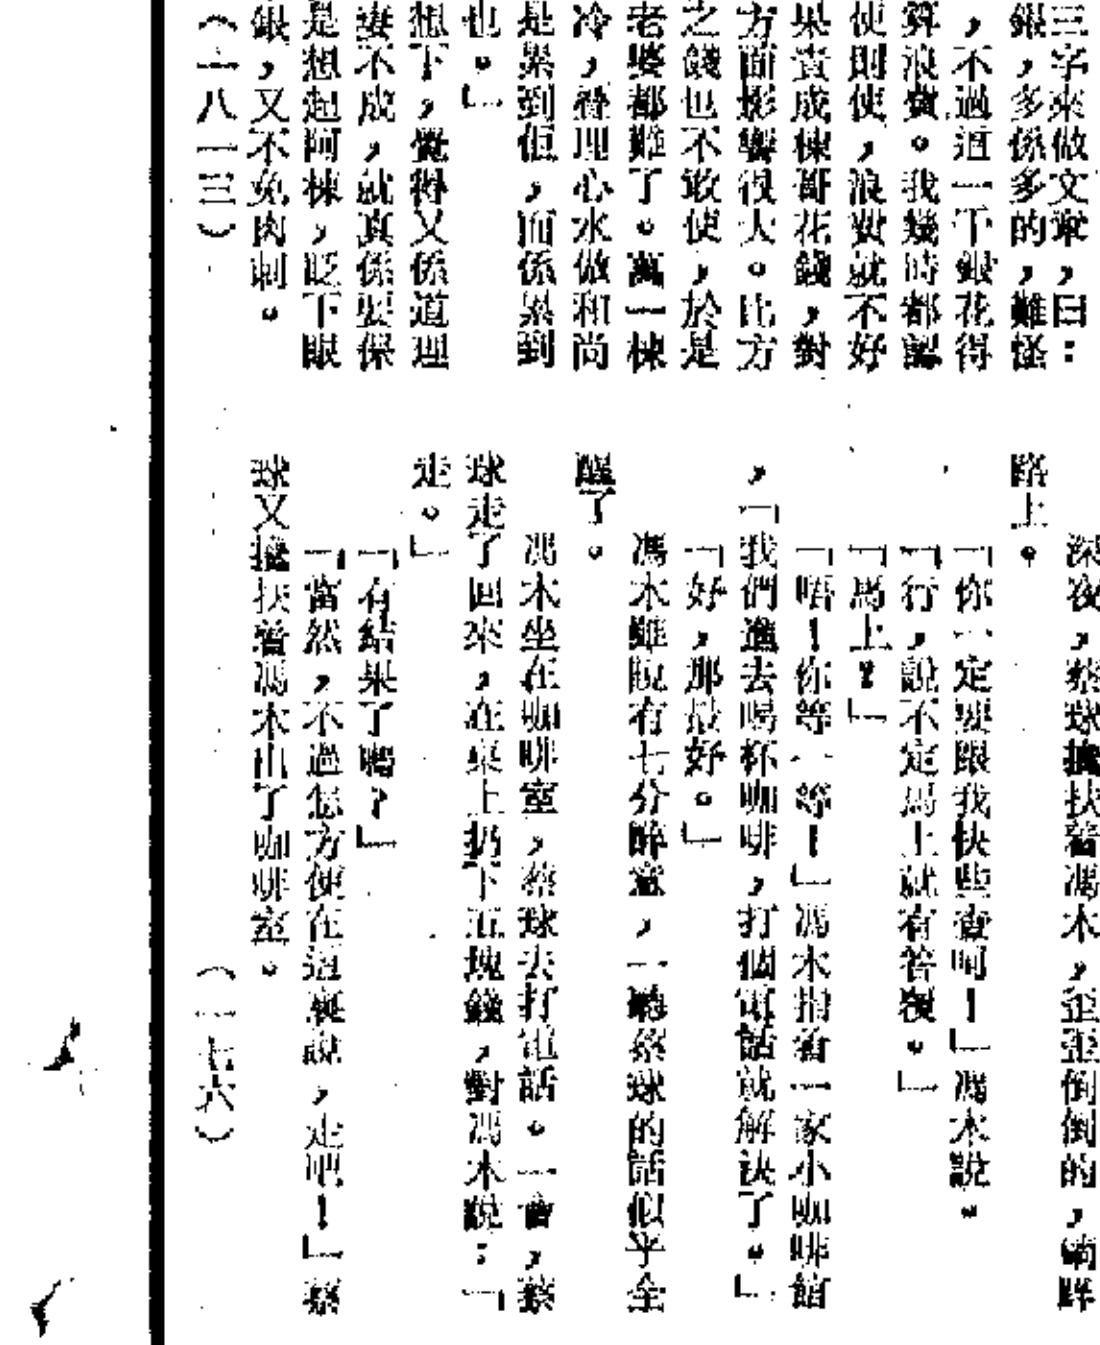 三字來做文章，曰：
銀，多係多多的，難怪
，不過這一千銀花得
算浪費。我幾時都認
使則使，浪費就不好
果責成棟哥花錢，對
方面影響很大。比方
之錢也不敢使，於是
老婆都難了。萬一棟
冷，理心水做和尚
是累到佢，而係累到
也。」
想下，覺得又係道理
妻不成，就真係要保
是想起阿棟，眨下眼
銀，又不免肉刺。
（一八一三）
深夜，蔡球扶着馮木，歪歪倒倒的，
路上。
「你一定要跟我快些查呵！」馮木說。
「行，說不定馬上就有答覆。」
「馬上？」
「唔！你等一等！」馮木指着一家小咖啡館
，「我們進去喝杯咖啡，打個電話就解決了。」
「好，那最好。」
馮木雖說有七分醉意，一聽蔡球的話似乎全
醒了。
馮木坐在咖啡室，蔡球去打電話。一會，蔡
球走了回來，在桌上扔下五塊錢，對馮木說：「
走。」
「有結果了嗎？」
「當然，不過怎方便在這裏說，走吧！」蔡
球又扶着馮木出了咖啡室。
（一七六）